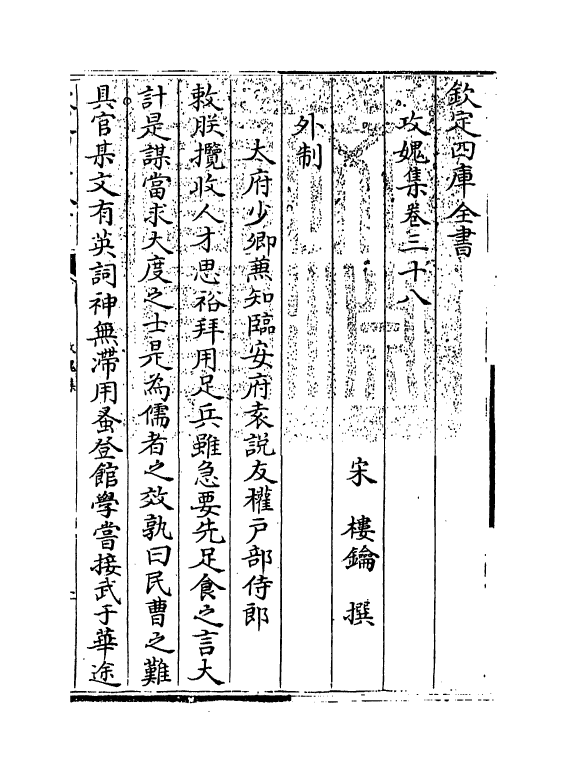 欽定四庫全書
攻媿集卷三十八
宋 樓鑰 撰
外制
太府少卿兼知臨安府袁説友權戸部侍郎
敕朕攬收人才思裕拜用足兵雖急要先足食之言大
計是謀當求大度之士是為儒者之效孰曰民曹之難
具官某文有英詞神無滯用蚤登館學嘗接武于華途